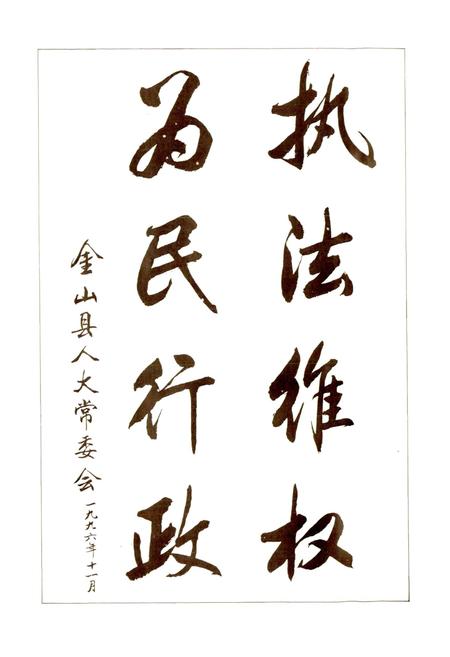 执法维权
为民行政
金山县人大常委会
一九九六年十一月